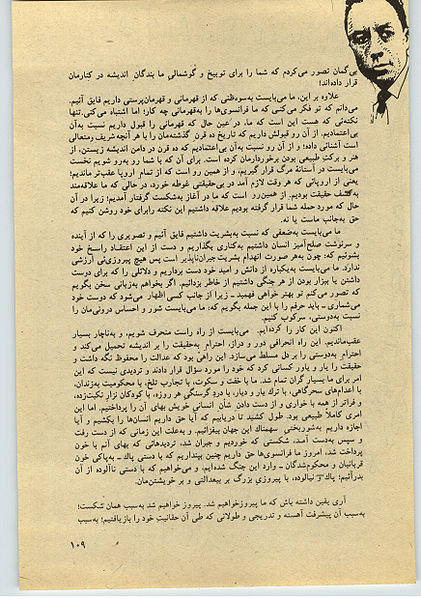 بی‌گمان تصور می‌کردم که شما را برای توبیخ و گوشمالی ما بندگان اندیشه در کنارمان
قرار داده‌اند!
علاوه بر این، ما می‌بایست به‌سوءظنی که از قهرمانی و قهرمان‌پرستی داریم فایق آئیم.
می‌دانم که تو فکر می‌کنی که ما فرانسوی‌ها را به‌قهرمانی چه کار؛ اما اشتباه می‌کنی. تنها
نکته‌ئی که هست این است که ما، در عین حال که قهرمانی را قبول داریم نسبت به‌آن
بی‌اعتمادیم. از آن رو قبولش داریم که تاریخ ده قرن گذشته‌مان را با هر آنچه شریف و متعالی
است آشنائی داده؛ و از آن رو نسبت به‌آن بی‌اعتمادیم که ده قرن در دامن اندیشه زیستن، از
هنر و برکتِ طبیعی بودن برخوردارمان کرده است. برای آن که با شما رو به‌رو شویم نخست
می‌بایست در آستانهٔ مرگ قرار گیریم، و از همین رو است که از تمام اروپا عقب‌تر ماندیم؛
یعنی از اروپائی که هر وقت لازم آمد در بی‌حقیقتی غوطه خورد، در حالی که ما علاقه‌مند
به‌کشف حقیقت بودیم. از همین رو است که ما در آغاز به‌شکست گرفتار آمدیم؛ زیرا در آن
حال که مورد حمله شما قرار گرفته بودیم علاقه داشتیم این نکته رابرای خود روشن کنیم که
حق به‌جانب ماست یا نه.
ما می‌بایست به‌ضعفی که نسبت به‌بشریت داشتیم فایق آئیم و تصویری را که از آینده
و سرنوشت صلح‌آمیز انسان داشتیم به‌کناری بگذاریم و دست از این اعتقاد راسخ خود
بشوئیم که: چون به‌هر صورت انهدام بشریت جبران‌ناپذیر است پس هیچ پیروزی‌ئی ارزشی
ندارد. ما می‌بایست به‌یکباره از دانش و امید خود دست برداریم و دلائلی را که برای دوست
داشتن یا بیزار بودن از هر جنگی داشتیم از خاطر بزدائیم. اگر بخواهم به‌زبانی سخن بگویم
که تصور می‌کنم تو بهتر خواهی فهمید ـ زیرا از جانب کسی اظهار می‌شود که دوست خود
می‌شماری ـ باید حرفم را با این جمله بگویم که: ما می‌بایست شور و احساس درونی‌مان را
نسبت به‌دوستی، سرکوب کنیم.
اکنون این کار را کرده‌ایم. می‌بایست از راه راست منحرف شویم، و به‌ناچار بسیار
عقب‌ماندیم. این راه انحرافی دور و دراز، احترام به‌حقیقت را بر اندیشه تحمیل می‌کند و
احترام به‌دوستی را بر دل مسلط می‌سازد. این راهی بود که عدالت را محفوظ نگه داشت و
حقیقت را یار و یاور کسانی کرد که خود را مورد سؤال قرار دادند و تردیدی نیست که این
امر برای ما بسیار گران تمام شد. ما با خفت و سکوت، با تجارب تلخ، با محکومیت به‌زندان،
با اعدام‌های سحرگاهی، با ترك یار و دیار، با درد گرسنگی هر روزه، با کودکان نزار نکبت‌زده،
و فراتر از همه با خواری و از دست دادن شأن انسانی خویش بهای آن را پرداختیم. اما این
امری کاملاً طبیعی بود. طول کشید تا دریابیم که آیا حق داریم انسان‌ها را بکشیم و آیا
اجازه داریم به‌شوربختی سهمناك این جهان بیفزائیم. و به‌علت این زمانی که از دست رفت
و سپس به‌دست آمد، شکستی که خوردیم و جبران شد، تردیدهائی که بهای آنم با خون
پرداخت شد، امروز ما فرانسوی‌ها حق داریم چنین بپنداریم که با دستی پاك ـ به‌پاکی خون
قربانیان و محکوم‌شدگان ـ وارد این جنگ شده‌ایم، و می‌خواهیم که با دستی ناآلوده از آن
بدرآئیم؛ پاك و نیالوده، با پیروزیِ بزرگ بر بیعدالتی و بر خویشتن‌مان.
آری یقین داشته باش که ما پیروزخواهیم شد. پیروز خواهیم شد به‌سبب همان شکست؛
به‌سبب آن پیشرفت آهسته و تدریجی و طولانی که طی آن حقانیت خود را بازیافتیم؛ به‌سبب
۱۰۹